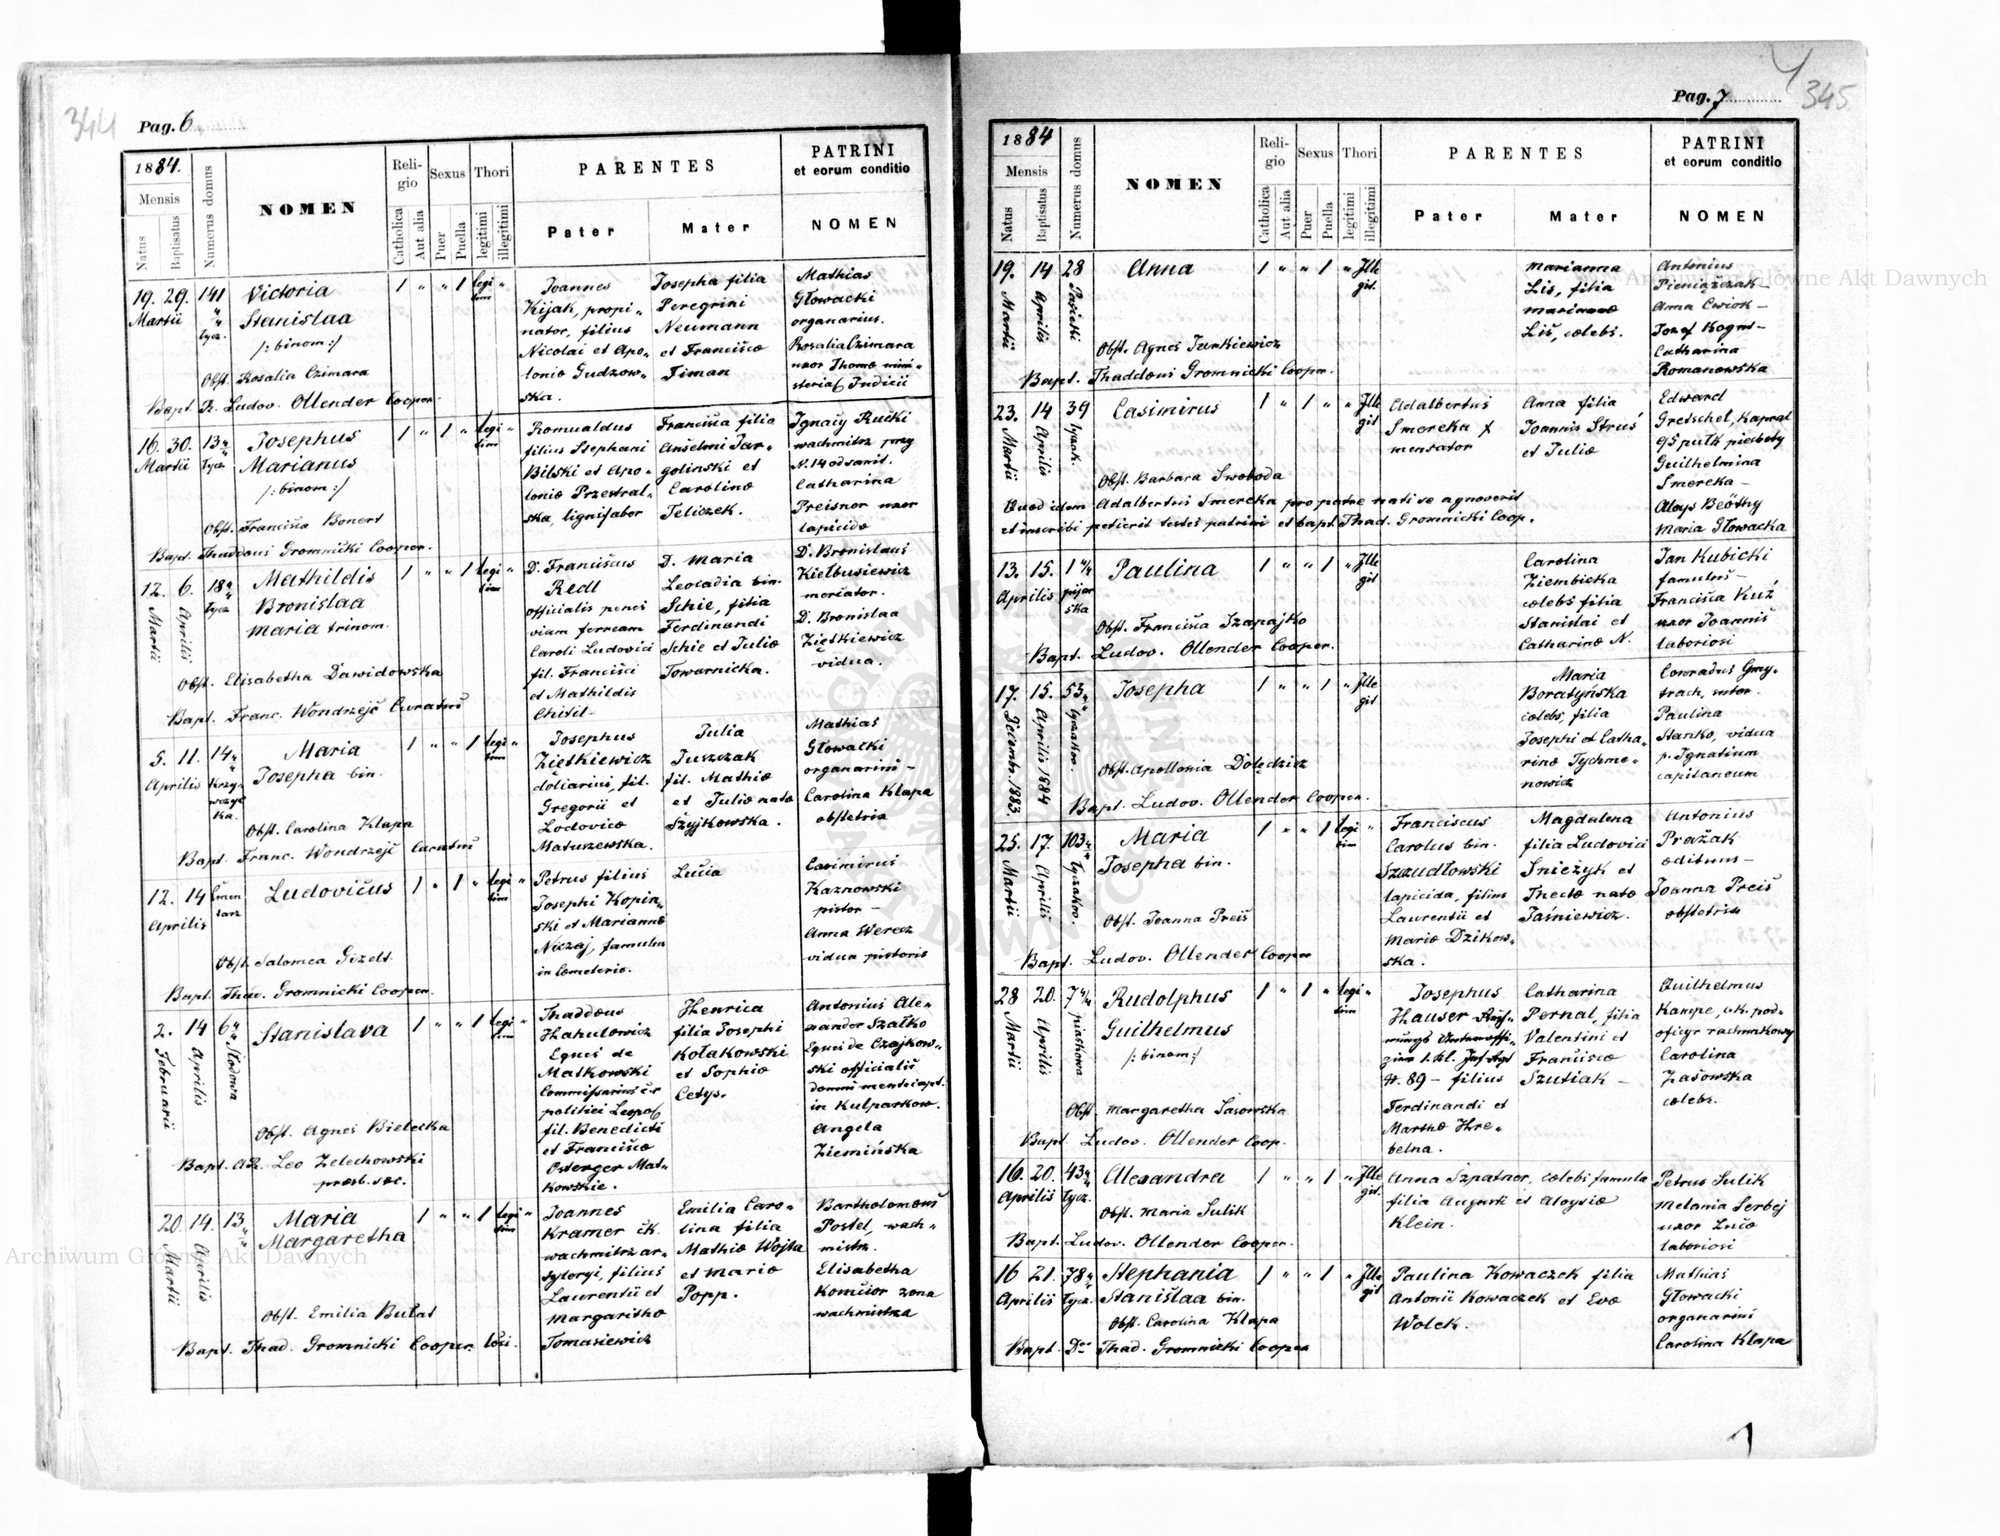 344
Pag. 6
1884.
Mensis
Natus
Baptisatus
Numerus domus
NOMEN
Reli-
gio
Catholica
Aut alia
Sexus
Puer
Puella
Thori
legitimi
illegitimi
PARENTES
Pater
Mater
PATRINI
et eorum conditio
NOMEN
19. 29. 141 Victoria 1 " " 1 legi "
Martii Stanislaa tim
/: binom :/
Obst. Rosalia Czimara
Bapt. Ludov. Ollender Cooper.
Joannes
Kijak, propi-
nator, filius
Nicolai et Apo-
loniæ Gudzow-
ska.
Josepha filia
Peregrini
Neumann
et Franciscæ
Timan
Mathias
Głowacki
organarius.
Rosalia Czimara
uxor Thomæ mini-
Judicii
16. 30. 13 Josephus 1 " 1 " legi "
Martii Marianus tim
/: binom :/
Obst. Francisca Bonert
Bapt. Thaddæus Gromnicki Cooper.
Romualdus
filius Stephani
Bilski et Apo-
loniæ Przestral-
ska, lignifaber
Francisca filia
Anselmi Jar-
golinski et
Carolinæ
Teliczek.
Ignacy Rucki
wachmitrz przy
N. 14 od sanit.
Catharina
Preisner uxor
lapicidæ
12. 6. 18 Mathildis 1 " " 1 legi "
Martii Aprilis Bronislaa tim
Maria trinom.
Obst. Elisabetha Dawidowska
Bapt. Franc. Wondrzejc Curatus
D. Franciscus
Redl
officialis penes
viam ferream
Caroli Ludovici
fil. Francisci
et Mathildis
Chitil
D. Maria
Leocadia bin.
Schie, filia
Ferdinandi
Schie et Juliæ
Towarnicka.
D. Bronislaus
Kiełbusiewicz
mercator.
D. Bronislaa
Zietkiewicz
vidua.
5. 11. 14 Maria 1 " " 1 legi "
Aprilis Josepha bin. tim
Obst. Carolina Klapa
Bapt. Franc. Wondrzejc Curatus
Josephus
Zietkiewicz
doliarius, fil.
Gregorii et
Lodovicæ
Matuszewska.
Julia
Tuszczak
fil. Mathiæ
et Juliæ nata
Szyjkowska.
Mathias
Głowacki
organarius -
Carolina Klapa
obstetrix
12. 14 Cmen Ludovicus 1 " 1 " legi "
Aprilis tarz tim
Obst. Salomea Gizelt
Bapt. Thad. Gromnicki Cooper.
Petrus filius
Josephi Kopin-
ski et Mariannæ
Niczaj, famulus
in Cæmeterio.
Lucia
Casimirus
Kaznowski
pistor -
Anna Werecz
vidua pistoris
2. 14 6 Stanislava 1 " " 1 legi "
Februarii Aprilis Stodowa tim
Obst. Agnes Bielecka
Bapt. A.R. Leo Zelechowski
presb. sæc.
Thaddæus
Hahulowicz
Eques de
Matkowski
Commissarius c.r.
politiei Leopol
fil. Benedicti
et Franciscæ
Osterger Mat-
kowskie.
Henrica
filia Josephi
Kołakowski
et Sophiæ
Cetys.
Antonius Ale-
xander Szałko
Eques de Czajkow-
ski officialis
domus mente capt.
in Kulparkow.
Angela
Ziemińska
20. 14. 13 Maria 1 " " 1 legi "
Martii Aprilis Margaretha tim
Obst. Emilia Bułat
Bapt. Thad. Gromnicki Cooper. loci.
Joannes
Kramer ck.
wachmitrz ar-
tyleryi, filius
Laurentii et
Margarithæ
Tomasiewicz
Emilia Caro-
lina filia
Mathiæ Wojta
et Mariæ
Popp.
Bartholomæus
Postel, wach-
mistrz.
Elisabetha
Komisor zona
wachmistrza
345
Pag. 7
1884
Mensis
Natus
Baptisatus
Numerus domus
NOMEN
Reli-
gio
Catholica
Aut alia
Sexus
Puer
Puella
Thori
legitimi
illegitimi
PARENTES
Pater
Mater
PATRINI
et eorum conditio
NOMEN
19. 14 28 Anna 1 " " 1 " Ille
Martii Aprilis Pasieki git.
Obst. Agnes Jurkiewicz
Bapt. Thaddæus Gromnicki Cooper.
Marianna
Lis, filia
Mariannæ
Lis, cælebs.
Antonius
Pieniążczak -
Anna Cwiok -
Catharina
Romanowska
23. 14 39 Casimirus 1 " 1 " " Ille
Martii Aprilis łyczak. git
Obst. Barbara Swoboda
Quod idem Adalbertus Smereka pro patre nati se agnoverit
et inscribi petierit testes patrini et bapt. Thad. Gromnicki Coop.
Adalbertus
Smereka
mensator
Anna filia
Joannis Struś
et Juliæ
Edward
Gretschel, Kapral
95 pułk piechoty
Guilhelmina
Smereka -
Aloys Beöthy
Maria Głowacka
13. 15. 1 4/4 Paulina 1 " " 1 " Ille
Aprilis pijar git
ska
Obst. Francisca Szapajko
Bapt. Ludov. Ollender Cooper.
Carolina
Ziembicka
cælebs filia
Stanislai et
Catharinæ N.
Jan Kubicki
famulus -
Francisca Kuź
uxor Joannis
laboriosi
17. 15. 53 Josepha 1 " " 1 " Ille
Decembr. 1883. Aprilis 1884 łyczakow. git
Obst. Apollonia Dolędzicz
Bapt. Ludov. Ollender Cooper.
Maria
Boratyńska
cælebs, filia
Josephi et Catha-
rinæ Tychme-
nowicz
Conradus Gmy-
trach, sutor.
Paulina
Stanko, vidua
p. Ignatium
capitaneum
25. 17. 103 Maria 1 " " 1 legi "
Martii Aprilis łyczakow. Josepha bin. tim
Obst. Joanna Preis
Bapt. Ludov. Ollender Cooper
Franciscus
Carolus bin.
Szzudłowski
lapicida, filius
Laurentii et
Mariæ Dzikow-
ska.
Magdalena
filia Ludovici
Snieżyk et
Theclæ nata
Jaśniewicz.
Antonius
Prażak
ædituus -
Joanna Preis
obstetrix
28 20. 7 4/4 Rudolphus 1 " 1 " legi "
Martii Aprilis piaskowa Guilhelmus tim
/: binom :/
Obst Margaretha Sasowska
Bapt. Ludov. Ollender Coop.
Josephus
Hauser
N. 89 - filius
Ferdinandi et
Marthæ Hre-
belna.
Catharina
Pernal, filia
Valentini et
Franciscæ
Szutiak -
Guilhelmus
Kampe, ck. pod-
oficyr rachunkowy
Carolina
Zasowska
cælebs.
16. 20. 43 Alexandra 1 " " 1 " Ille
Aprilis łycz. git.
Obst. Maria Sulik
Bapt. Ludov. Ollender Cooper.
Anna Szpatner, cælebs famula
filia Augusti et Aloysiæ
Klein.
Petrus Sulik
Melania Serbej
uxor Lucæ
laboriosi
16 21. 78 Stephania 1 " " 1 " Ille
Aprilis łycz. Stanislaa bin. git
Obst. Carolina Klapa
Bapt. Thad. Gromnicki Cooper
Paulina Kowaczek filia
Antonii Kowaczek et Evæ
Wolek.
Mathias
Głowacki
organarius
Carolina Klapa
Archiwum Główne Akt Dawnych
Archiwum Główne Akt Dawnych